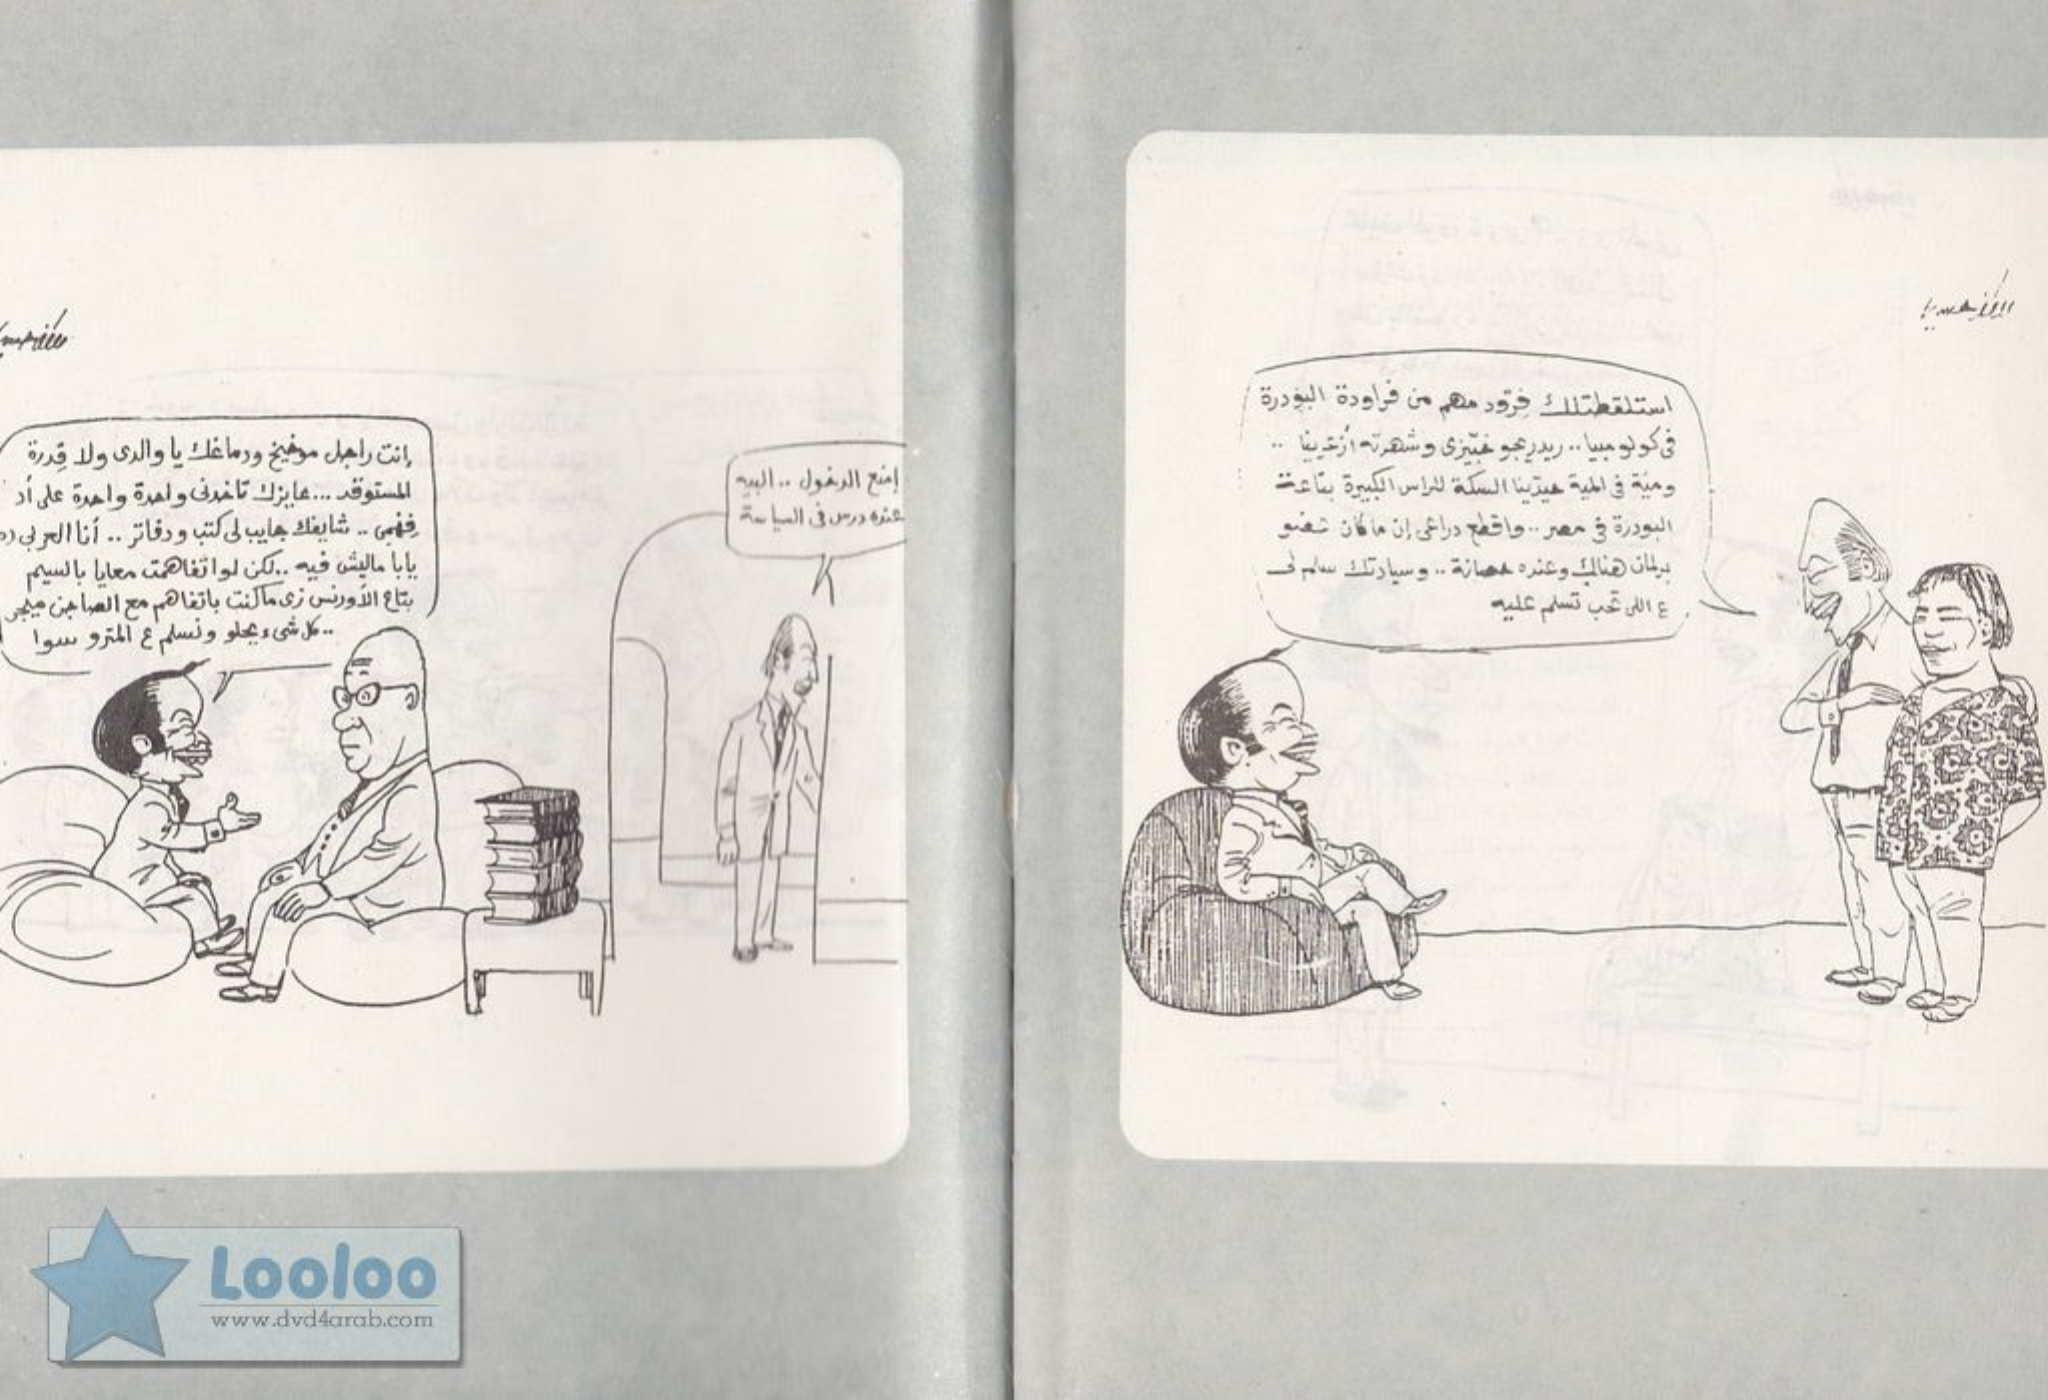 استلقطتلك فرود مهم من فراودة البودرة
فى كولومبيا.. ريدريجو خبيزى وشهرته أزعرينا ..
ومية فى المية حيدينا السكة للراس الكبيرة بتاعة
البودرة فى مصر.. واقطع دراعى إن ما كان عضو
برلمان هناك وعنده حصانة.. وسيادتك سلم لى
ع اللى تحب تسلم عليه
إمنع الدخول .. البيه
عنده درس فى السياسة
إنت راجل موخيخ ودماغك يا والدى ولا قدرة
المستوقد... عايزك تاخدنى واحدة واحدة على أد
فهمى.. شايفك جايب لى كتب ودفاتر.. أنا العربى ده
يابا ماليش فيه.. لكن لو اتفاهمت معايا بالسيم
بتاع الأورنس زى ما كنت باتفاهم مع الصاجن ميجر
.. كل شىء يحلو ونسلم ع المترو سوا
Looloo
www.dvd4arab.com